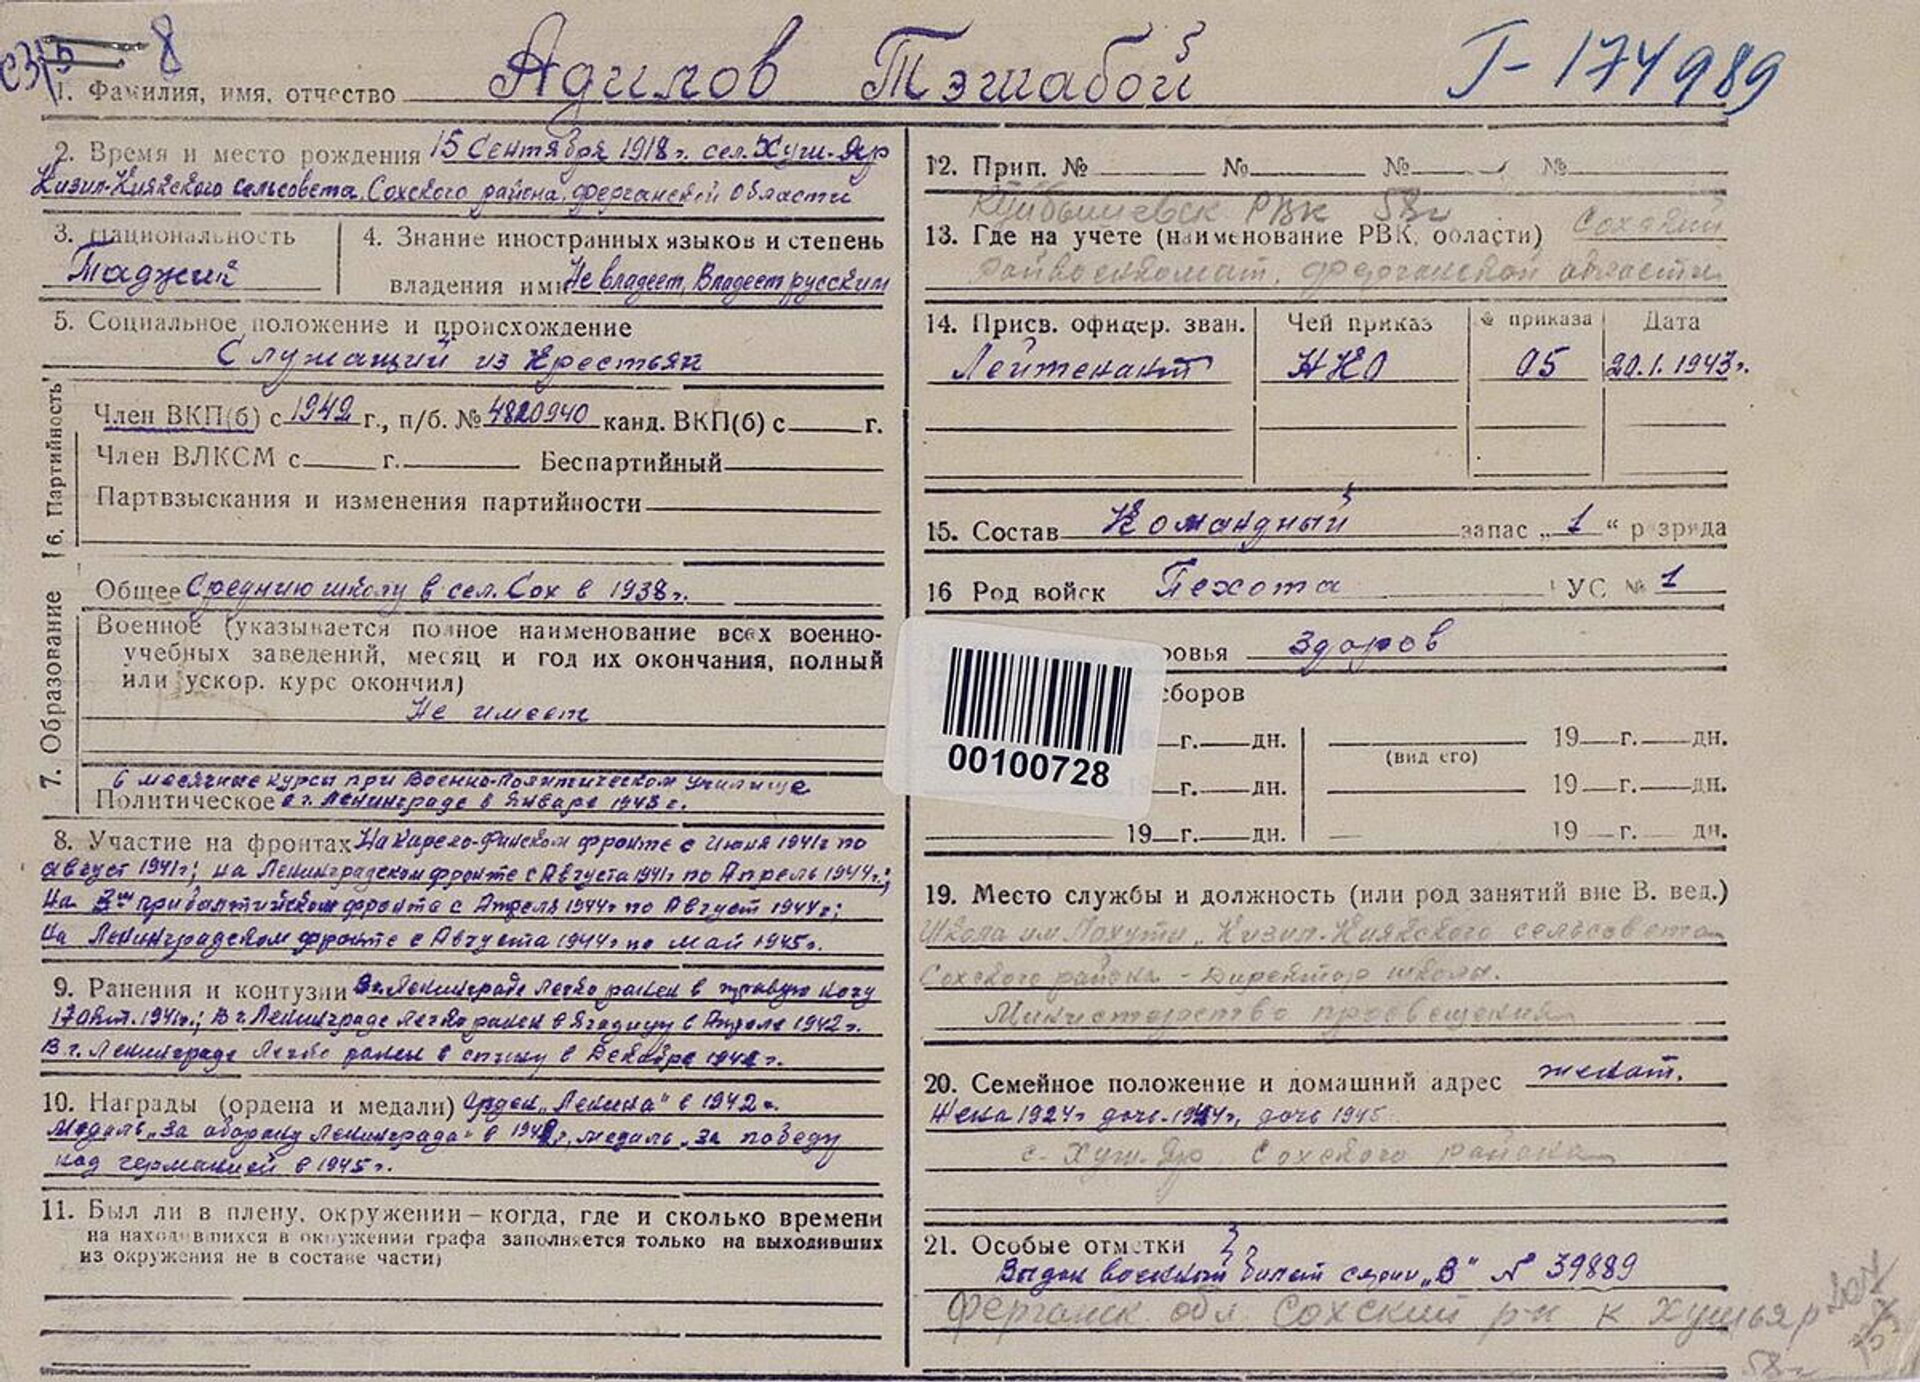 8
1. Фамилия, имя, отчество Адилов Тэшабой Т-174989
2. Время и место рождения 15 Сентября 1918 г. сел. Хуш-Яр
Кизил-Киякского сельсовета, Сохского района, Ферганской области
3. Национальность
Таджик
4. Знание иностранных языков и степень
владения ими Не владеет, Владеет русским
5. Социальное положение и происхождение
Служащий из крестьян
6. Партийность
Член ВКП(б) с 1942 г., п/б. № 4820940 канд. ВКП(б) с г.
Член ВЛКСМ с г. Беспартийный
Партвзыскания и изменения партийности
7. Образование
Общее Среднию школу в сел. Сох в 1938 г.
Военное (указывается полное наименование всех военно-
учебных заведений, месяц и год их окончания, полный
или ускор. курс окончил)
Не имеет
6 месячные курсы при Военно-Политическом училище
Политическое в г. Ленинграде в Январе 1943 г.
8. Участие на фронтах На Карело-Финском фронте с Июня 1941 г по
Август 1941 г; на Ленинградском фронте с Августа 1941 г по Апрель 1944 г.;
На 3им прибалтийском фронте с Апреля 1944 г по Август 1944 г;
на Ленинградском фронте с Августа 1944 г по май 1945 г.
9. Ранения и контузии В г. Ленинграде легко ранен в правую ногу
17 окт. 1941 г.; В г. Ленинграде легко ранен в ягодицу в Апреле 1942 г.
В г. Ленинграде легко ранен в спину в Декабре 1942 г.
10. Награды (ордена и медали) Орден „Ленина" в 1942 г.
медаль „За оборону Ленинграда" в г, медаль „За победу
над германией в 1945 г.
11. Был ли в плену, окружении – когда, где и сколько времени
на находившихся в окружении графа заполняется только на выходивших
из окружения не в составе части)
12. Прип. № № № №
Куйбышевск РВК 58 г
13. Где на учете (наименование РВК, области) Сохский
Райвоенкомат, Ферганской области
14. Присв. офицер. зван. Чей приказ № приказа Дата
Лейтенант НКО 05 20.1.1943 г.
15. Состав Командный запас „1" разряда
16 Род войск Пехота ВУС № 1
ровья здоров
сборов
г. дн. (вид его) 19 г. дн.
г. дн. 19 г. дн.
19 г. дн. 19 г. дн.
00100728
19. Место службы и должность (или род занятий вне В. вед.)
Школа им. Лахути, Кизил-Киякского сельсовета
Сохского района - Директор школы.
Министерство просвещения
20. Семейное положение и домашний адрес женат.
Жена 1924 г дочь 1944 г, дочь 1945
с. Хуш-Яр Сохского района
21. Особые отметки
Выдан военный билет серии „В" № 39889
Ферганск обл Сохский р-н к Хушьяр
58 г